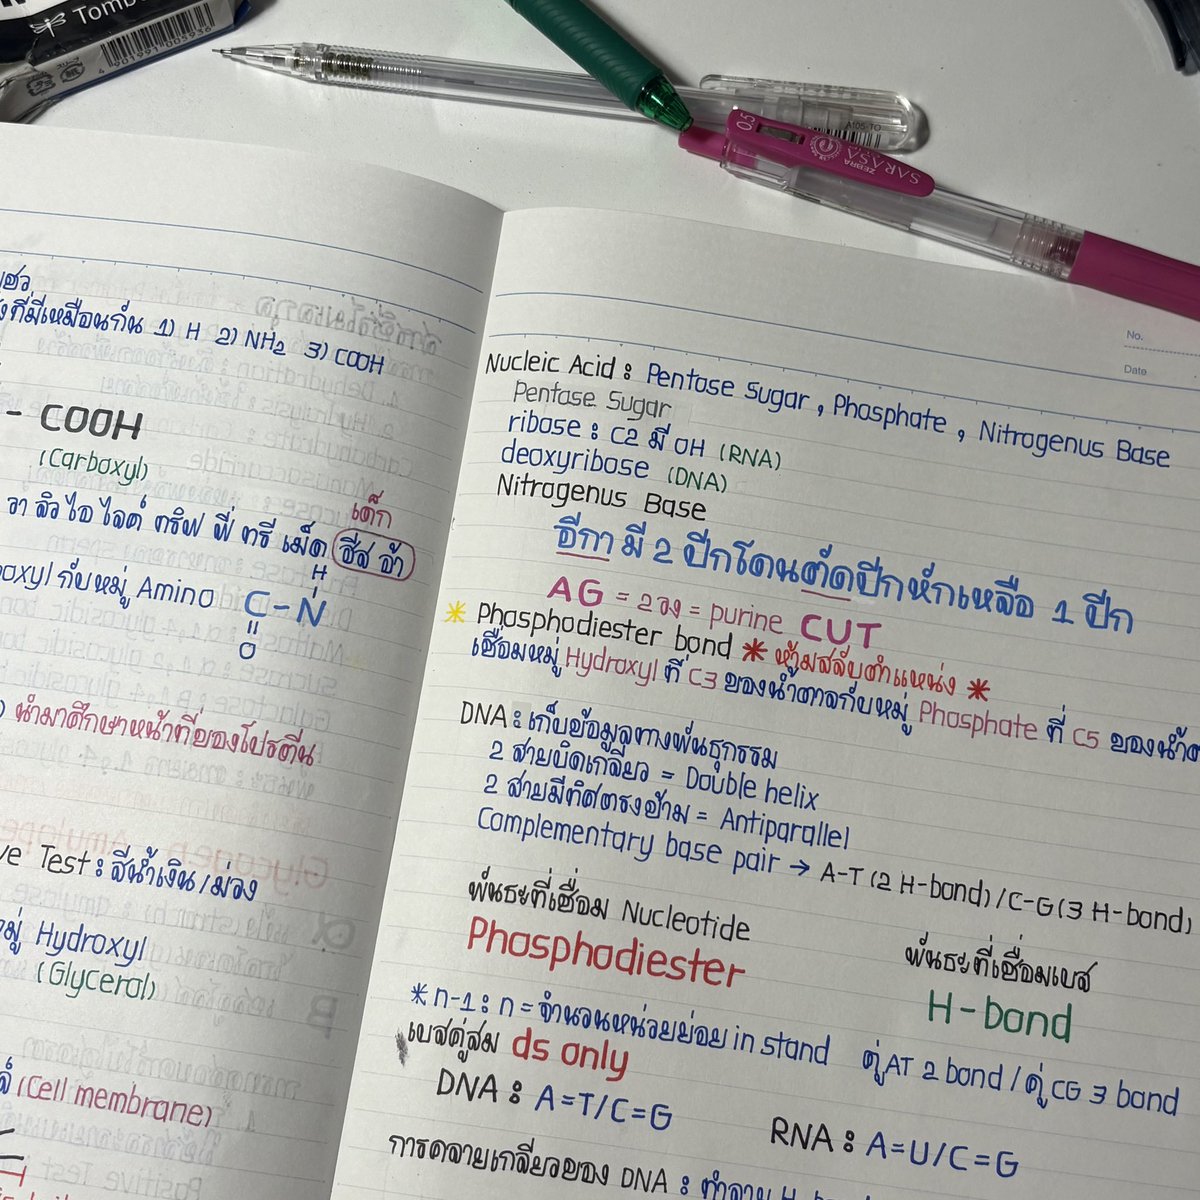 Tombo
4901991003936
0.5
ZEBRA
SARASA
A105-TO
ที่มีเหมือนกัน 1) H 2) NH2 3) COOH
- COOH
(Carboxyl)
เด็ก
อา ลิว ไอ ไลค์ ทริฟ ฟี่ ทรี เม็ด ฮีส อ้า
กับหมู่ Amino
H
C-N
O
นำมาศึกษาหน้าที่ของโปรตีน
Test: สีน้ำเงิน/ม่วง
Hydroxyl
(Glycerol)
(Cell membrane)
No.
Date
Nucleic Acid : Pentose Sugar, Phosphate, Nitrogenus Base
Pentose Sugar
ribose : C2 มี OH (RNA)
deoxyribose (DNA)
Nitrogenus Base
อีกา มี 2 ปีกโดนตัดปีกหักเหลือ 1 ปีก
AG = 2 วง = purine CUT
* Phosphodiester bond * ห้ามสลับตำแหน่ง *
เชื่อมหมู่ Hydroxyl ที่ C3 ของน้ำตาลกับหมู่ Phosphate ที่ C5 ของ
DNA : เก็บข้อมูลทางพันธุกรรม
2 สายบิดเกลียว = Double helix
2 สายมีทิศตรงข้าม = Antiparallel
Complementary base pair → A-T (2 H-bond) / C-G (3 H-bond)
พันธะที่เชื่อม Nucleotide
Phosphodiester
พันธะที่เชื่อมเบส
H-bond
*n-1 : n = จำนวนหน่วยย่อย in stand
คู่ AT 2 bond / คู่ CG 3 bond
เบสคู่สม ds only
DNA : A=T/C=G
RNA : A=U/C=G
การคลายเกลียวของ DNA : ทำลาย H-